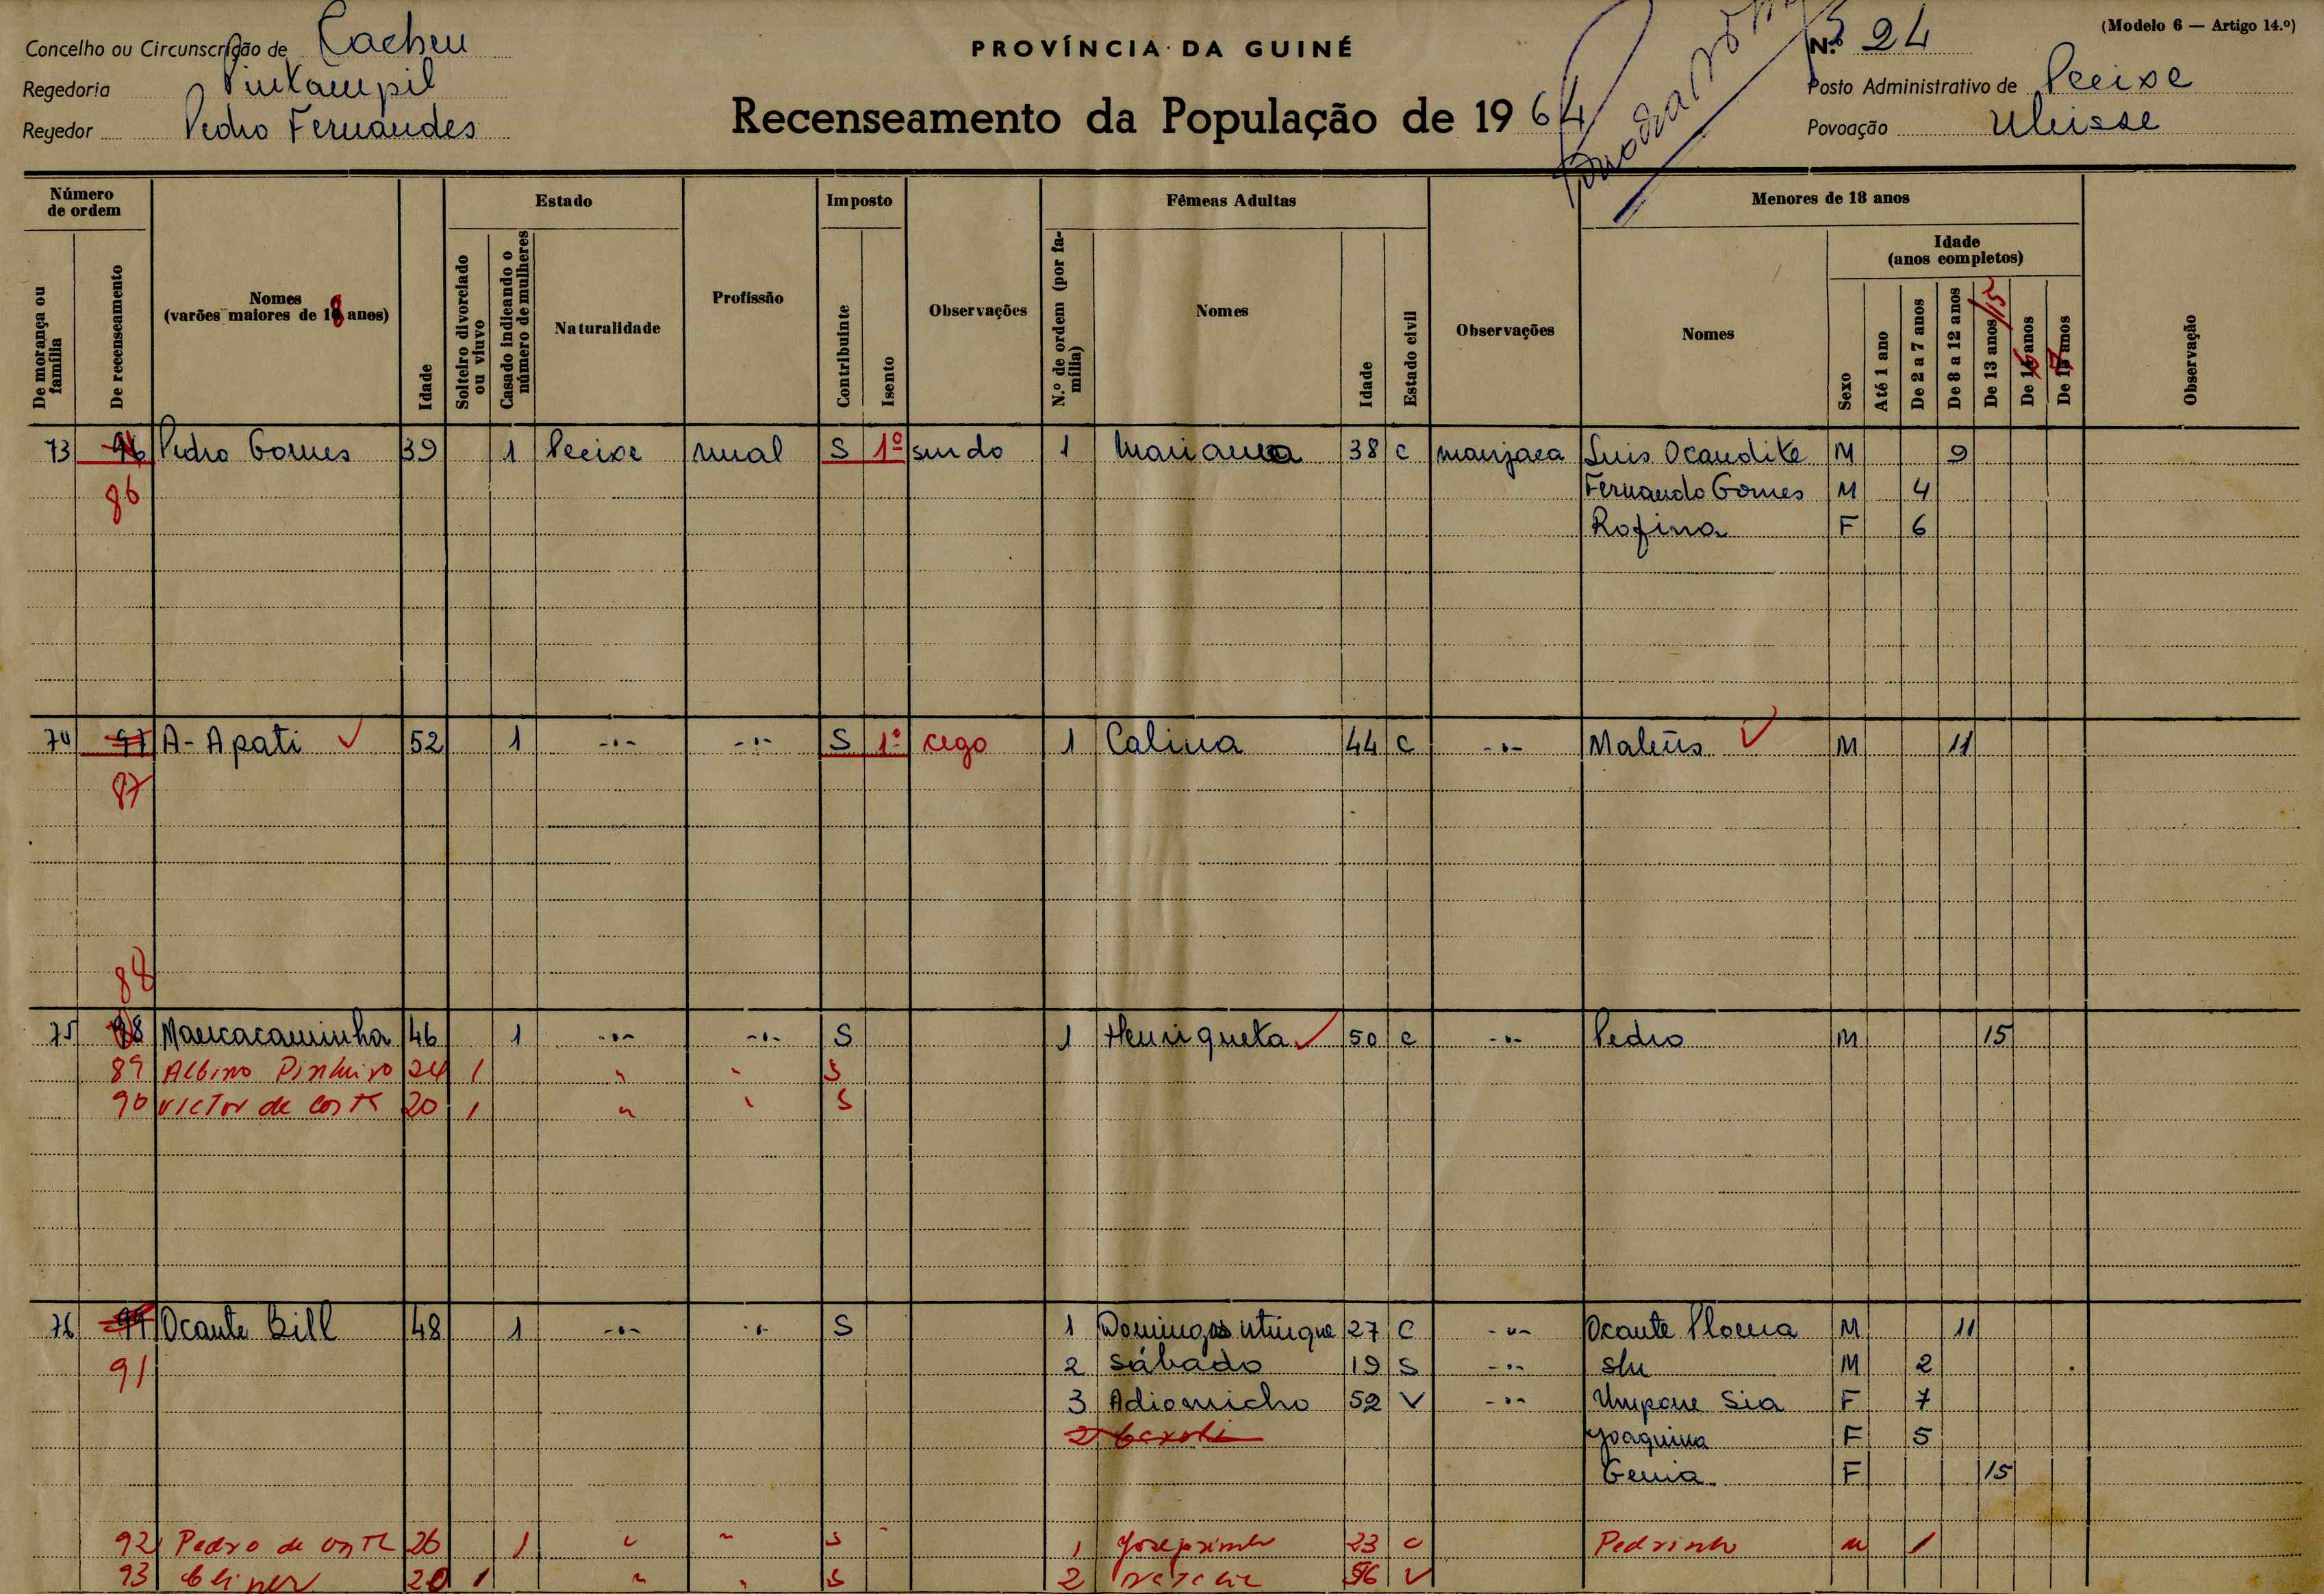 Concelho ou Circunscrição de Cacheu
PROVÍNCIA DA GUINÉ
N.º 24
(Modelo 6 — Artigo 14.º)
Regedoria
Posto Administrativo de Peeixe
Regedor Pedro Fernandes
Recenseamento da População de 1964
Povoação
Número de ordem
De morança ou família
De recenseamento
Nomes (varões maiores de 18 anos)
Idade
Estado
Solteiro divorciado ou viuvo
Casado indicando o número de mulheres
Naturalidade
Profissão
Imposto
Contribuinte
Isento
Observações
Fêmeas Adultas
N.º de ordem (por família)
Nomes
Idade
Estado civil
Observações
Menores de 18 anos
Nomes
Idade (anos completos)
Sexo
Até 1 ano
De 2 a 7 anos
De 8 a 12 anos
De 13 anos /15
De 16 anos
De 17 anos
Observação
73 96 Pedro Gomes 39 1 Peeixe rural S 1º surdo 1 Mariana 38 C manjaca Luis Ocandite M 9
86 Fernando Gomes M 4
Rofina F 6
74 97 A-Apati 52 1 -"- -"- S 1º cego 1 Calina 44 C -"- M 11
87
88
75 98 Marcacaminha 46 1 -"- -"- S 1 Henriqueta 50 C -"- Pedro M 15
89 Albino Pinheiro 24 1 " " S
90 Victor de Costa 20 1 " " S
76 99 Ocante Bill 48 1 -"- -"- S 1 Domingas 27 C -"- Ocante M 11
91 2 Sábado 19 S -"- M 2
3 Adiomicho 52 V -"- Sia F 7
2 Joaquina F 5
F 15
92 Pedro de Costa 26 1 " " S 1 23 C Pedrinho M 1
93 20 1 " " S 2 56 V